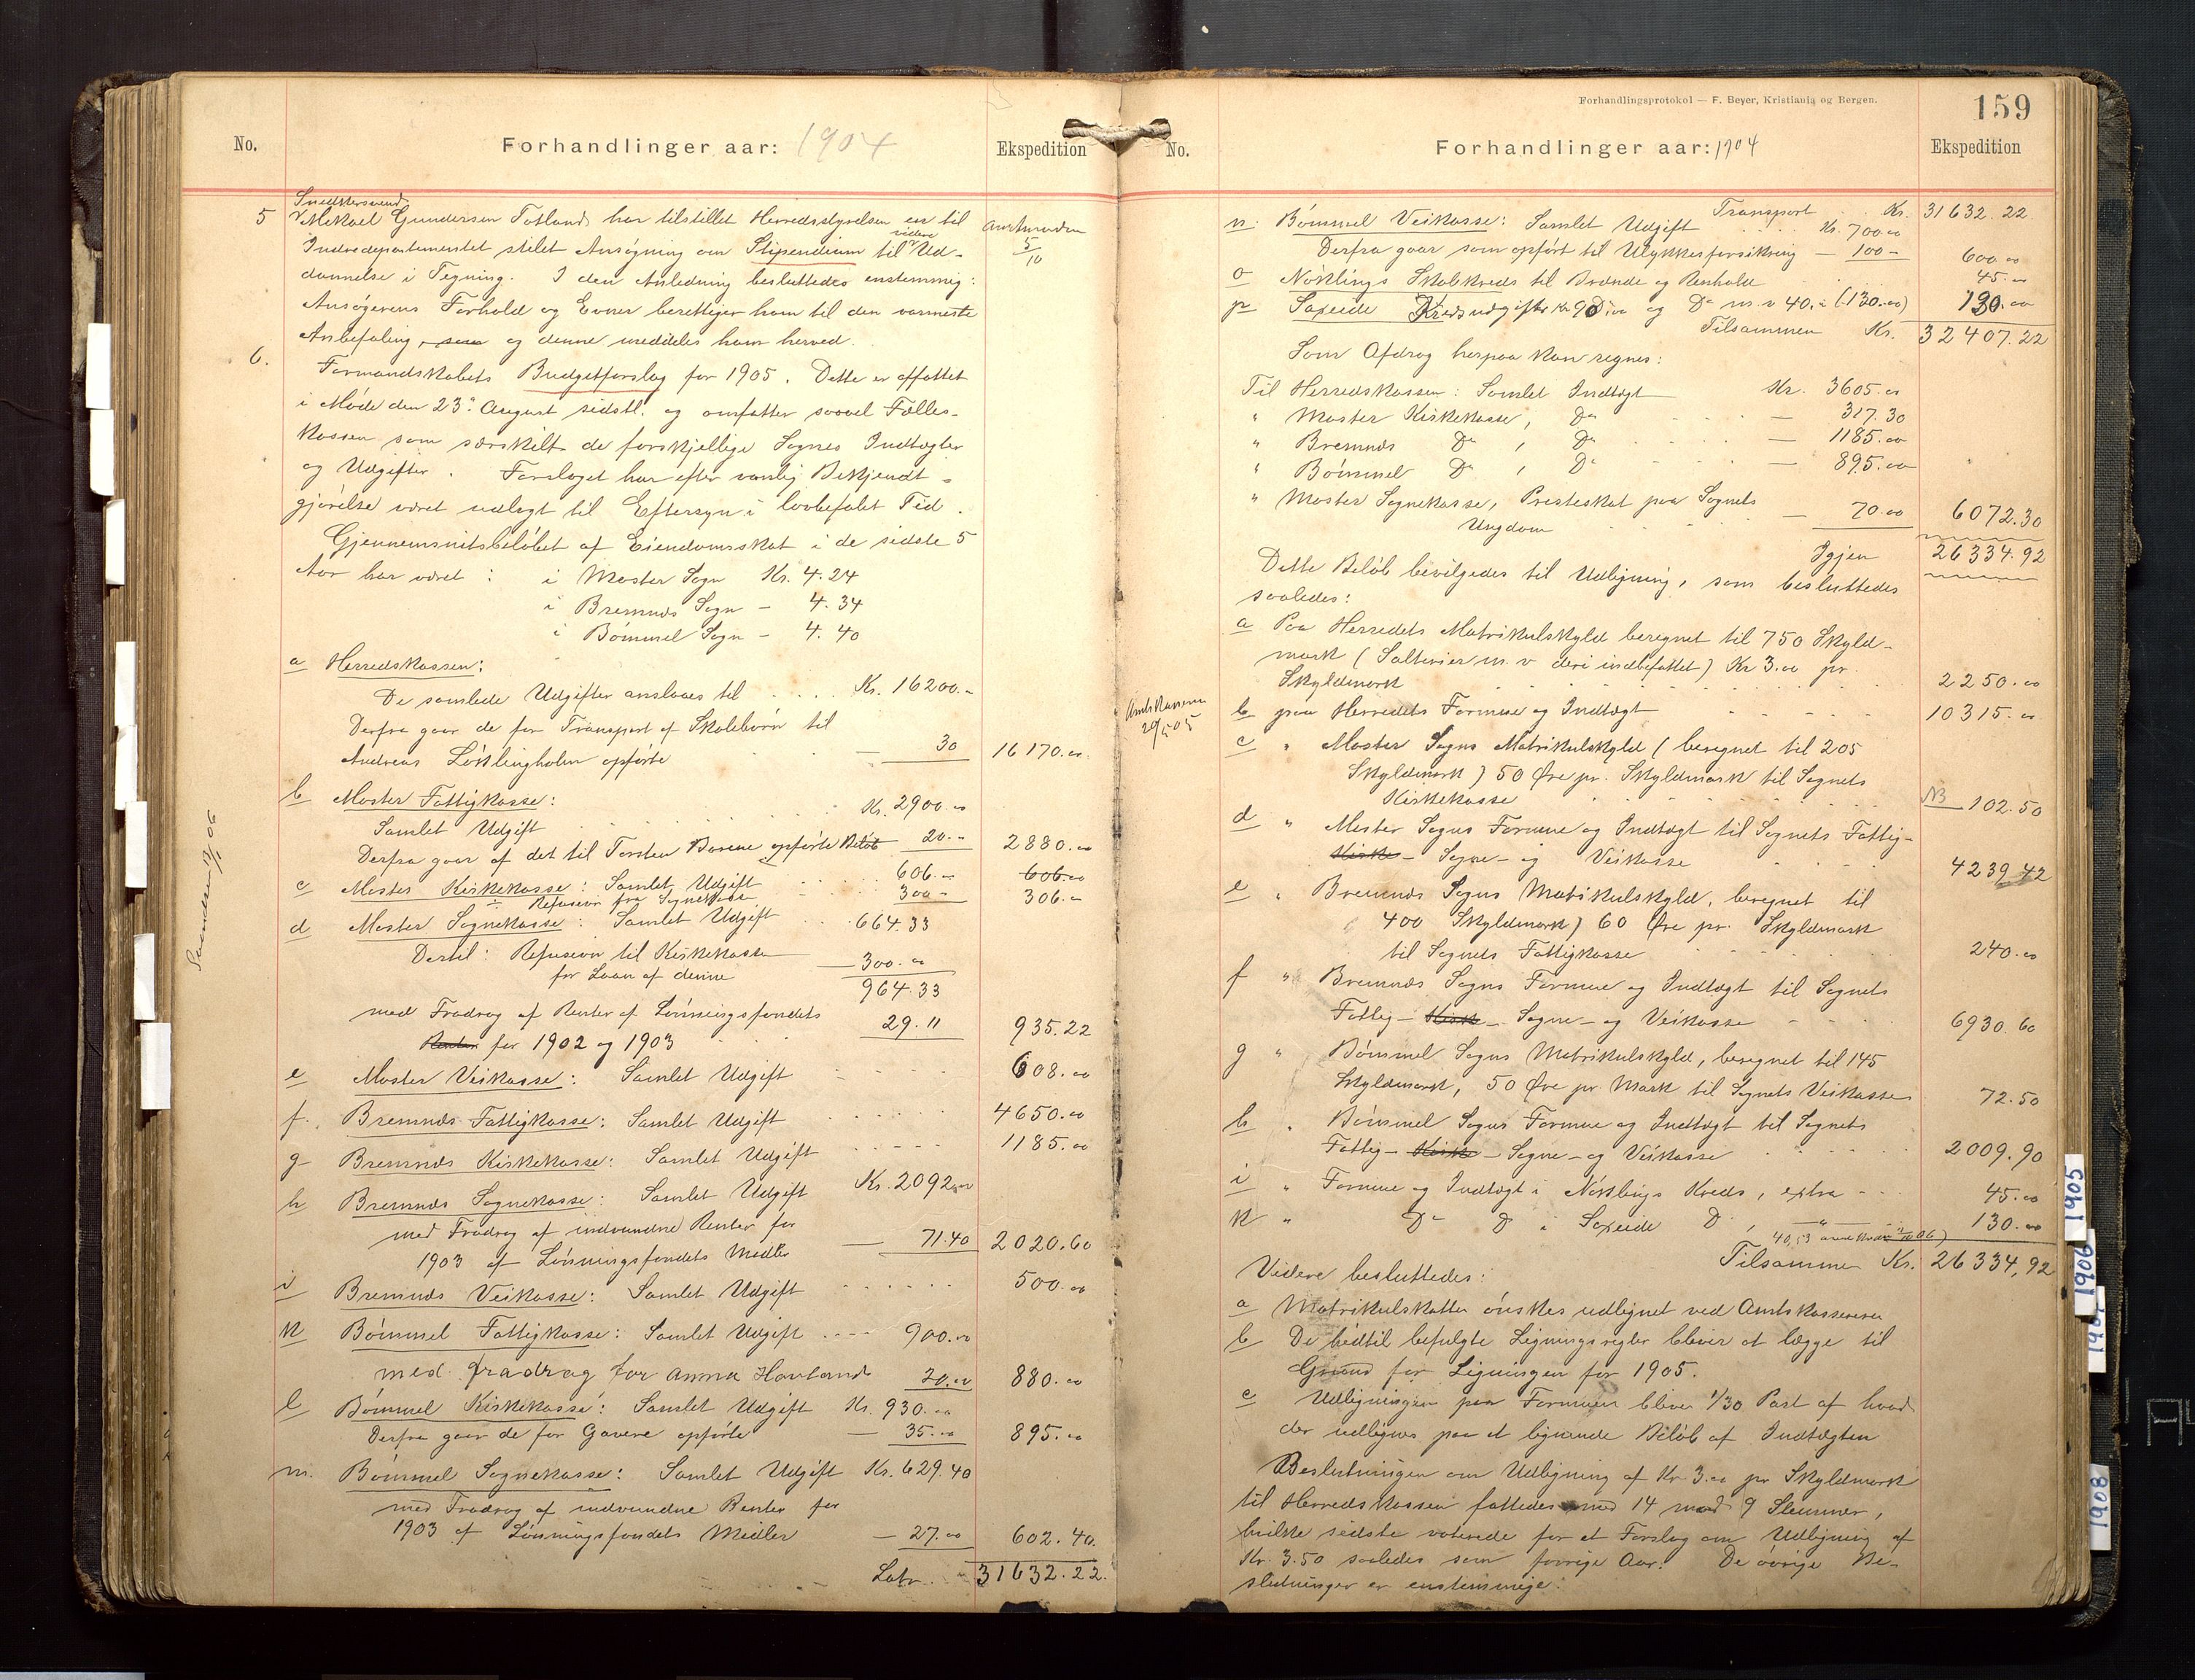 No.
Forhandlinger aar: 1904
Ekspedition
Snedkersvend
5 Mikael Gundersen Totland har tilstillet Herredsstyrelsen en til
Amtmanden 5/10
Indredepartementet stilet Ansøgning om Stipendium til videre Ud-
dannelse i Tegning. I den Anledning besluttedes enstemmig:
Ansøgerens Forhold og Evner berettiger ham til den varmeste
Anbefaling, som og denne meddeles ham herved.
6. Formandskabets Budgetforslag for 1905. Dette er affattet
i Møde den 23de August sidstl. og omfatter saavel Fælles-
kassen som særskilt de forskjellige Sognes Indtægter
og Udgifter. Forslaget har efter vanlig Bekjendt-
gjørelse været udlagt til Eftersyn i lovbefalet Tid.
Gjennemsnitsbeløbet af Eiendomsskat i de sidste 5
Aar har været: i Moster Sogn Kr. 4.24
i Bremnæs Sogn - 4.34
i Bømmel Sogn - 4.40
a Herredskassen:
De samlede Udgifter anslaaes til .... Kr. 16200.-
Derfra gaar de for Transport af Skolebørn til
Andreas Løklingholm opførte — 30 16170.00
b Moster Fattigkasse:
Samlet Udgift Kr. 2900.00
Derfra gaar af det til Torsten Børene opførte Beløb 20.- 2880.00
c Moster Kirkekasse: Samlet Udgift 606.- 606.00
÷ Refusion fra Sognekasse 300.- 306.-
d Moster Sognekasse: Samlet Udgift 664.33
Dertil: Refusion til Kirkekasse
for Laan af denne — 300.00
964.33
med Fradrag af Renter af Lønningsfondets
Renter for 1902 og 1903 29.11 935.22
e Moster Veikasse: Samlet Udgift 608.00
f. Bremnæs Fattigkasse: Samlet Udgift 4650.00
g Bremnæs Kirkekasse: Samlet Udgift 1185.00
h Bremnæs Sognekasse: Samlet Udgift Kr. 2092.00
med Fradrag af indvundne Renter for
1903 af Lønningsfondets Midler — 71.40 2020.60
i Bremnæs Veikasse: Samlet Udgift 500.00
k Bømmel Fattigkasse: Samlet Udgift .... 900.00
med fradrag for Anna Hovland 20.00 880.00
l Bømmel Kirkekasse: Samlet Udgift Kr. 930.00
Derfra gaar de for Gavere opførte — 35.00 895.00
m. Bømmel Sognekasse: Samlet Udgift Kr. 629.40
med Fradrag af indvundne Renter for
1903 af Lønningsfondets Midler — 27.00 602.40.
Latr. 31632.22.
Forhandlingsprotokol — F. Beyer, Kristiania og Bergen.
159
No.
Forhandlinger aar: 1904
Ekspedition
Transport . . Kr. 31632.22.
n. Bømmel Veikasse: Samlet Udgift Kr. 700.00
Derfra gaar som opført til Ulykkesforsikring — 100- 600.00
o Nøklings Skolekreds til Brænde og Renhold 45.00
p Saxeide Kredsudgifter kr 90.00 og Do m.v 40.- (130.00) 130.00
Tilsammen Kr. 32407.22
Som Afdrag herpaa kan regnes:
Til Herredskassen: Samlet Indtægt Kr. 3605.00
" Moster Kirkekasse, Do — 317.30
" Bremnæs Do , Do — 1185.00
" Bømmel Do , Do — 895.00
" Moster Sognekasse, Presteskat paa Sognets
Ungdom — 70.00 6072.30
Igjen 26334.92
Dette Beløb bevilgedes til Udligning, som besluttedes
saaledes:
a Paa Herredets Matrikulskyld beregnet til 750 Skyld-
mark (Salterier m.v deri indbefattet) Kr 3.00 pr.
Skyldmark 2250.00
Amtskasserer
b paa Herredets Formue og Indtægt 10315.00
c " Moster Sogns Matrikulskyld (beregnet til 205
Skyldmark) 50 Øre pr. Skyldmark til Sognets
Kirkekasse NB 102.50
d " Moster Sogns Formue og Indtægt til Sognets Fattig-
Kirke- Sogne- og Veikasse 4239.42
e " Bremnæs Sogns Matrikulskyld, beregnet til
400 Skyldmark) 60 Øre pr. Skyldmark
til Sognets Fattigkasse 240.00
f " Bremnæs Sogns Formue og Indtægt til Sognets
Fattig- Kirke- Sogne- og Veikasse 6930.60
g " Bømmel Sogns Matrikulskyld, beregnet til 145
Skyldmark, 50 Øre pr. Mark til Sognets Veikasse 72.50
h " Bømmel Sogns Formue og Indtægt til Sognets
Fattig- Kirke- Sogne- og Veikasse 2009.90
i " Formue og Indtægt i Nøklings Kreds, extra 45.00
k " Do Do i Saxeide Do, —"— 130.00
Tilsammen Kr. 26334,92
Videre besluttedes:
a Matrikulskatten ønskes udlignet ved Amtskassereren
b De hidtil befulgte Ligningsregler bliver at lægge til
Grund for Ligningen for 1905.
c Udligningen paa Formuen bliver 1/30 Part af hvad
der udlignes paa et lignende Beløb af Indtægten
Beslutningen om Udligning af Kr 3.00 pr Skyldmark
til Herredskassen fattedes med 14 mod 9 Stemmer,
hvilke sidste voterede for et Forslag om Udligning af
Kr. 3.50 saaledes som forrige Aar. De øvrige Be-
slutninger er enstemmige.
1905
1906
1908